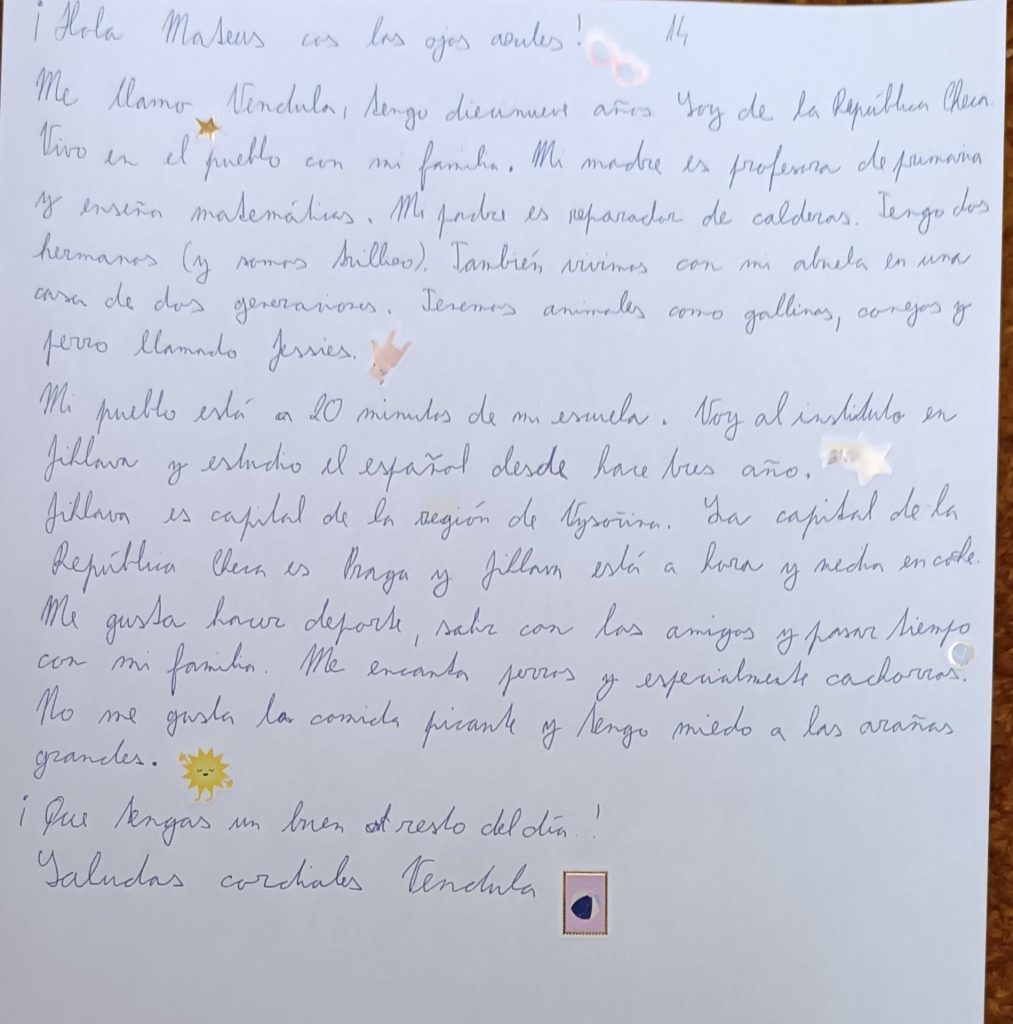 ¡Hola Mateus cos los ojos azules! 14
Me llamo Vendula, tengo diecinueve años. Soy de la República Checa.
Vivo en el pueblo con mi familia. Mi madre es profesora de primaria
y enseña matemáticas. Mi padre es reparador de calderas. Tengo dos
hermanos (y somos trillizo). También vivimos con mi abuela en una
casa de dos generaciones. Tenemos animales como gallinas, conejos y
perro llamado Jessies.
Mi pueblo está a 20 minutos de mi escuela. Voy al instituto en
Jihlava y estudio el español desde hace tres año.
Jihlava es capital de la región de Vysočina. La capital de la
República Checa es Praga y Jihlava está a hora y media en coche.
Me gusta hacer deporte, salir con los amigos y pasar tiempo
con mi familia. Me encanta perros y especialmente cachorros.
No me gusta la comida picante y tengo miedo a las arañas
grandes.
¡Que tengas un buen resto del día.!
Saludos cordiales Vendula